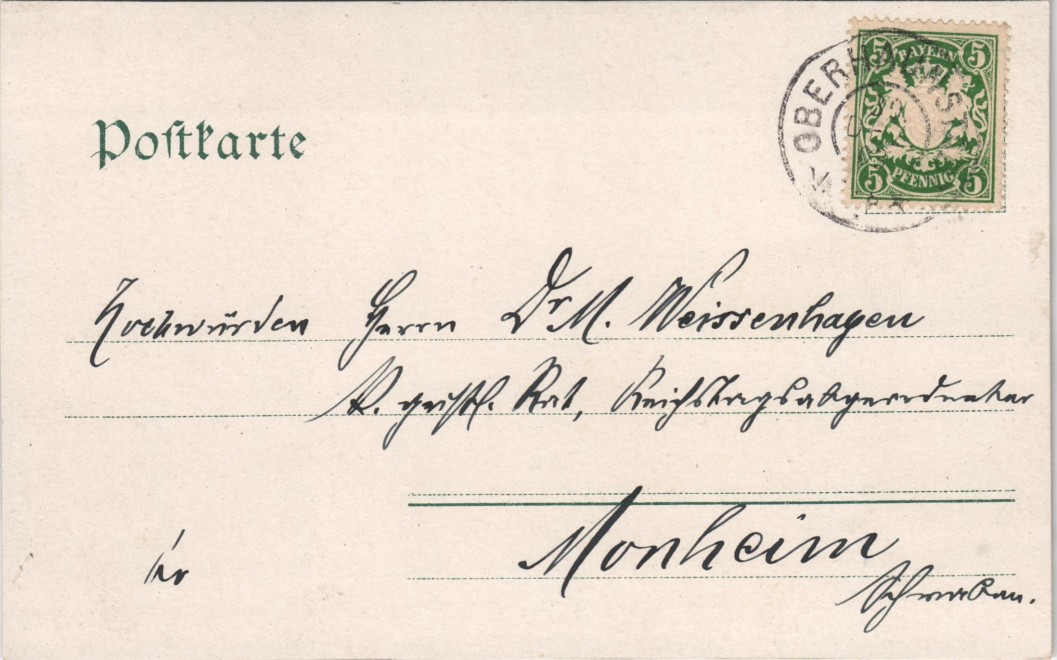 5 BAYERN 5
OBERHAUS
5 PFENNIG 5
Postkarte
Hochwürden Herrn Dr M. Weissenhagen
K. geistl. Rat, Reichstagsabgeordneter
Monheim
Schwaben.